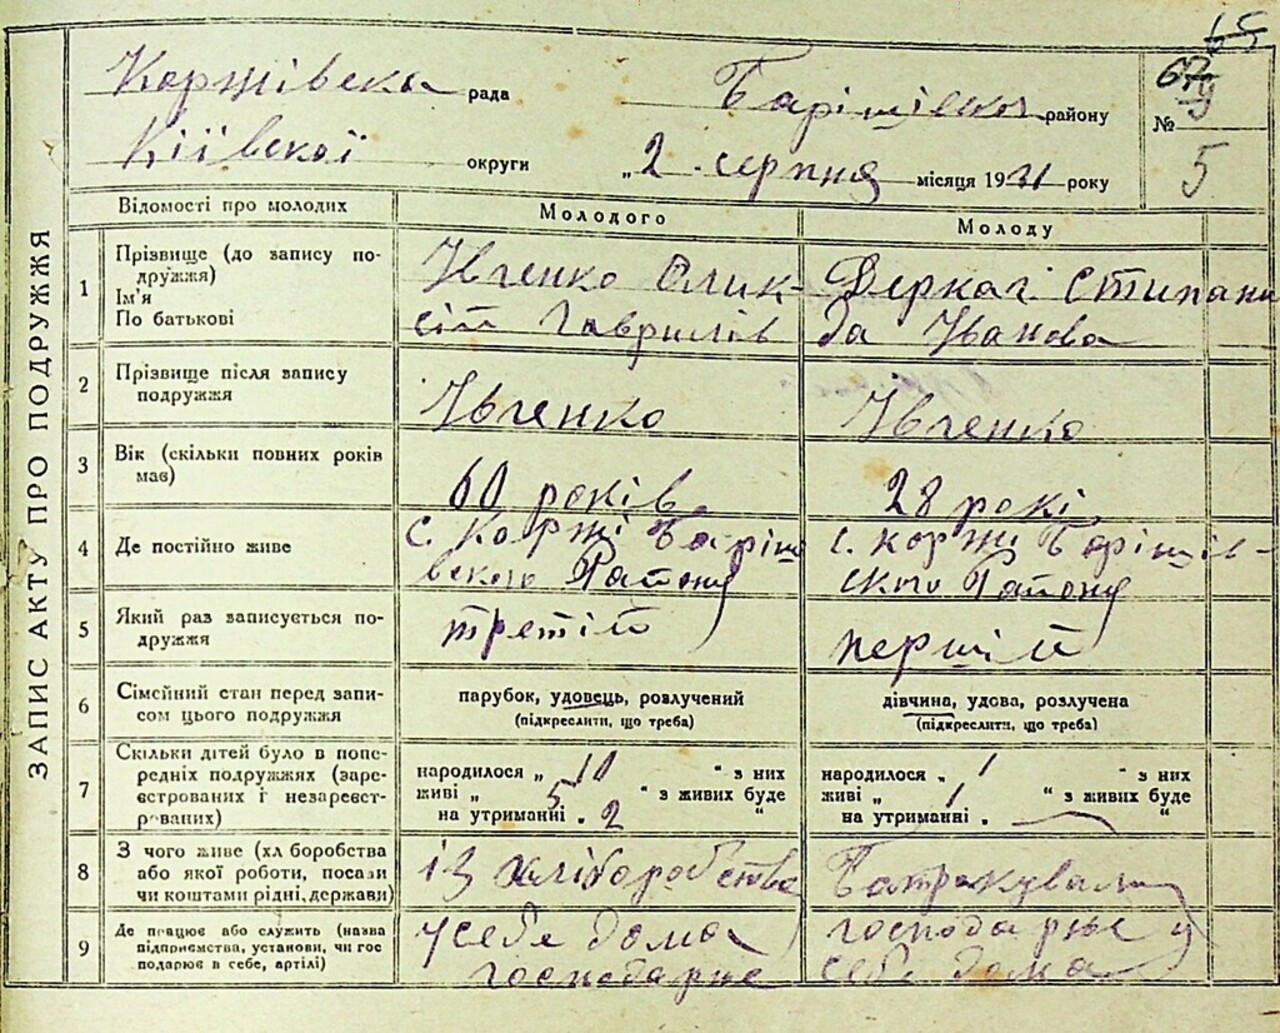 65
67
9
Коржівська рада
Барішівског району
№
Кіївскої округи
„2 серпня місяця 1931 року
5
ЗАПИС АКТУ ПРО ПОДРУЖЖЯ
Відомості про молодих
Молодого
Молоду
1
Прізвище (до запису по-
дружжя)
Ім'я
По батькові
Івченко Олик-
сій Гаврилів
Деркач Стипани
да Іванова
2
Прізвище після запису
подружжя
Івченко
Івченко
3
Вік (скільки повних років
має)
60 років
28 рокі
4
Де постійно живе
с. Коржі Баріш
вского Району
с. коржи Барішів-
ского Району
5
Який раз записується по-
дружжя
третій
першій
6
Сімейний стан перед запи-
сом цього подружжя
парубок, удовець, розлучений
(підкреслити, що треба)
дівчина, удова, розлучена
(підкреслити, що треба)
7
Скільки дітей було в попе-
редніх подружжях (заре-
єстрованих і незареєст-
рованих)
народилося „ 10 " з них
живі „ 5 " з живих буде
на утриманні „ 2 "
народилося „ 1 " з них
живі „ 1 " з живих буде
на утриманні „ — "
8
З чого живе (хліборобства
або якої роботи, посади
чи коштами рідні, держави)
із хліборобства
Батракувала
9
Де працює або служить (назва
підприємства, установи, чи гос
подарює в себе, артілі)
усебе дома
господарює
господарює у
себе дома